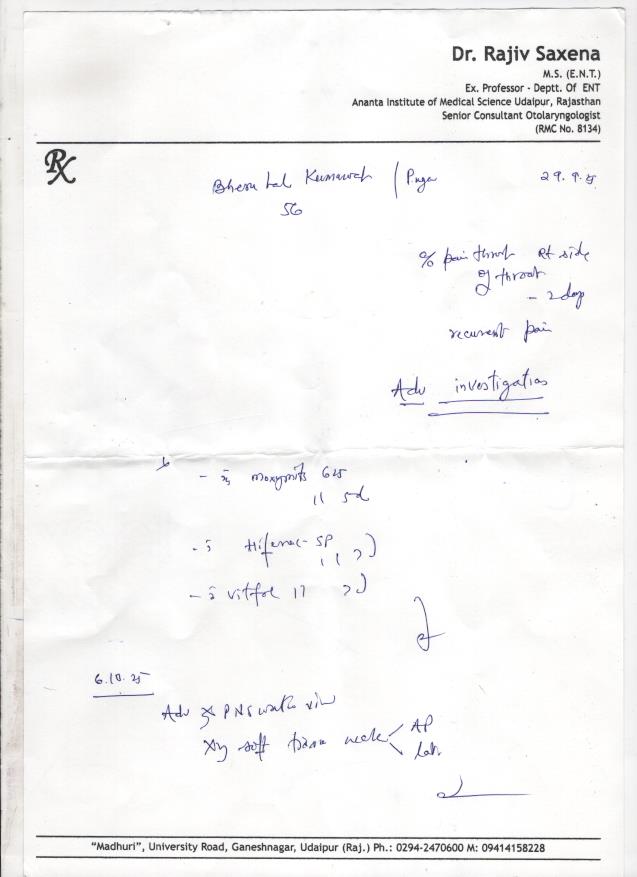 Dr. Rajiv Saxena
M.S. (E.N.T.)
Ex. Professor - Deptt. Of ENT
Ananta Institute of Medical Science Udaipur, Rajasthan
Senior Consultant Otolaryngologist
(RMC No. 8134)
Rx
Bheru Lal Kumawat / 29.9.25
56
c/o pain throat Rt side
of throat
- 2 days
recurrent pain
Adv investigation
- 625
11 5d
- Hifenac-SP
11
- 11
6.10.25
Adv PNS view
Xry soft tissue neck AP
Lat.
"Madhuri", University Road, Ganeshnagar, Udaipur (Raj.) Ph.: 0294-2470600 M: 09414158228